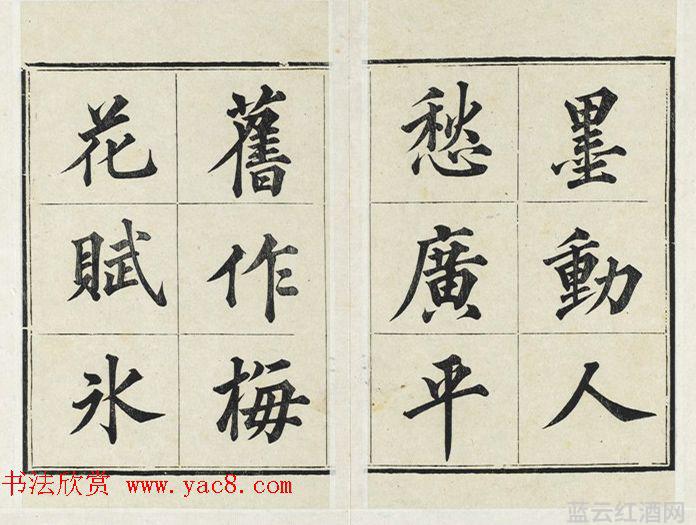 墨動人
愁廣平
舊作梅
花賦氷
书法欣赏 www.yac8.com
蓝云红酒网